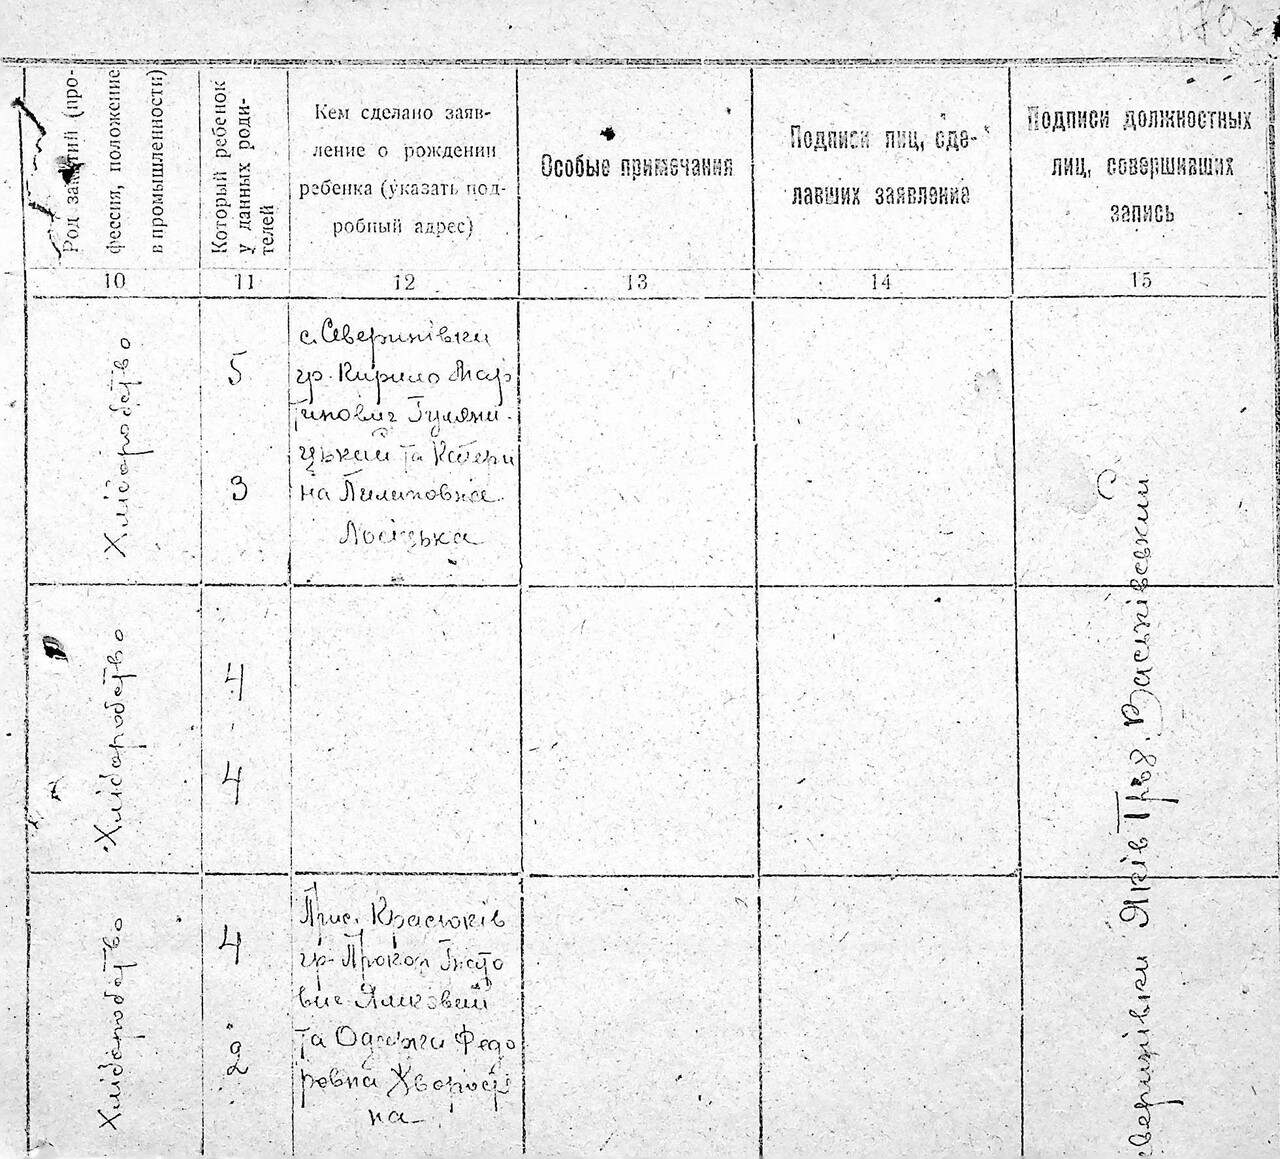 170
Род занятий (про-
фессия, положение
в промышленности)
Который ребенок
у данных роди-
телей
Кем сделано заяв-
ление о рождении
ребенка (указать под-
робный адрес)
Особые примечания
Подписи лиц, сде-
лавших заявление
Подписи должностных
лиц, совершивших
запись
10
11
12
13
14
15
Хліборобство
5
3
с. Северинівки
гр. Кирило Мар
тинович Гуляни-
цький та Катери
на Пилиповна
Лосіцька
Хліборобство
4
4
Хліборобство
4
2
Прис. Красюків
гр. Прокоп Гнато
вич
та Федо
ровна
на
северинівки Яків Васьківський